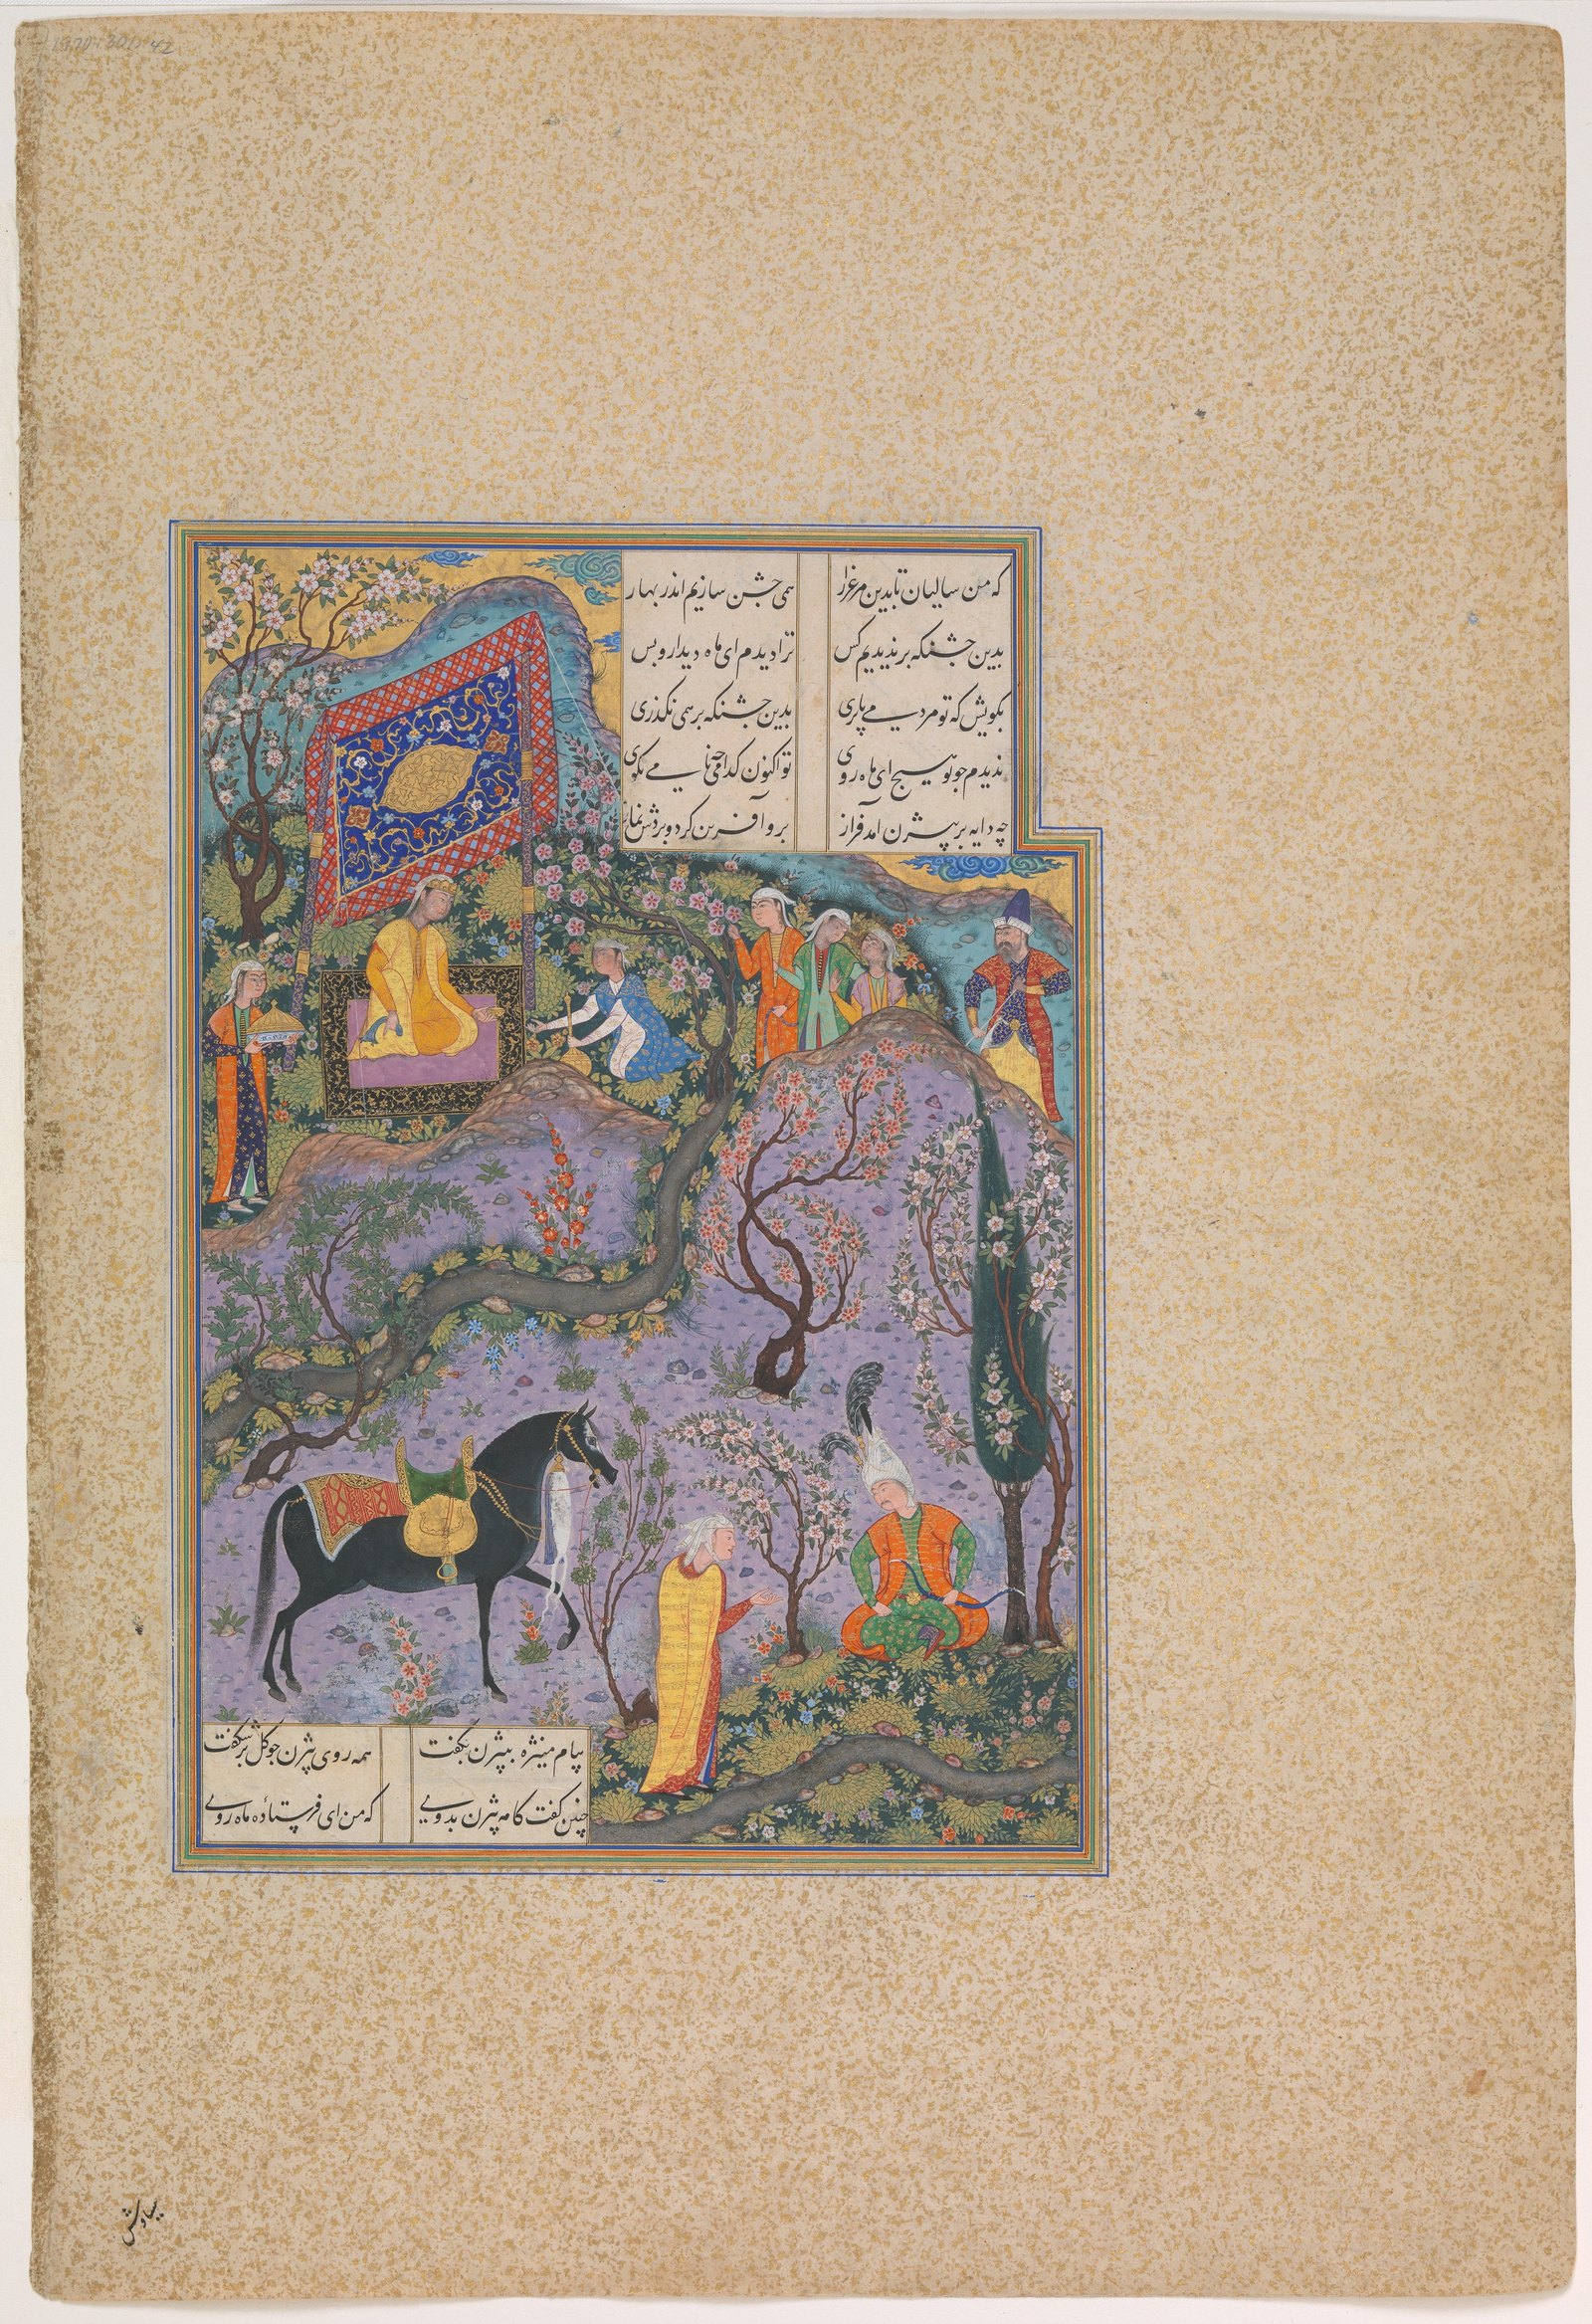 1970.301.42
که من سالیان تا بدین مرغزار همی جشن سازیم اندر بهار
بدین جشنکه بر ندیدیم کس ترا دیدم ای ماه دیدار و بس
بکویش که تو مردمی یا پری بدین جشنکه بر همی نکذری
ندیدم چو تو هیچ ای ماه روی تو اکنون کدامی چه نامی بکوی
چه دایه بر بیژن آمد فراز برو آفرین کرد و بردش نماز
پیام منیژه ببیژن بکفت همه روی بیژن چو کل برشکفت
چنین کفت کامه بیژن بدوی که من ای فرستاده ماه روی
سیاوش